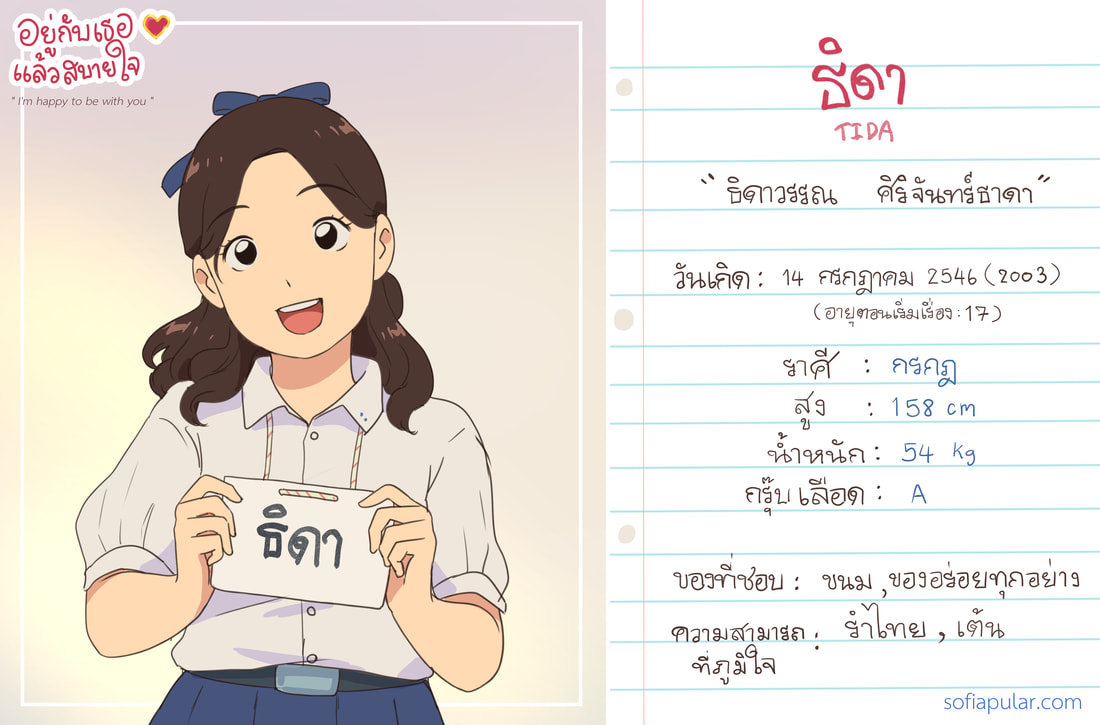 อยู่กับเธอ
แล้วสบายใจ
" I'm happy to be with you "
ธิดา
ธิดา
TIDA
“ธิดาวรรณ ศิริจันทร์ธาดา”
วันเกิด : 14 กรกฎาคม 2546 (2003)
(อายุตอนเริ่มเรื่อง : 17)
ราศี : กรกฎ
สูง : 158 cm
น้ำหนัก : 54 kg
กรุ๊บเลือด : A
ของที่ชอบ : ขนม , ของอร่อยทุกอย่าง
ความสามารถ : รำไทย , เต้น
ที่ภูมิใจ
sofiapular.com